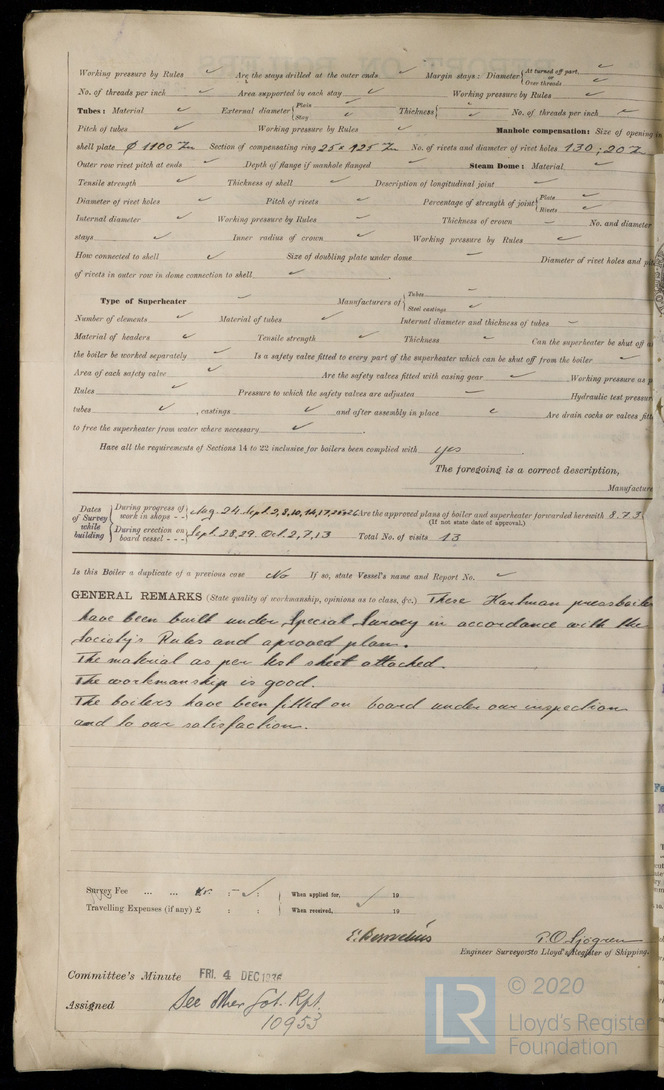 Working pressure by Rules ✓ Are the stays drilled at the outer ends ✓ Margin stays: Diameter { At turned off part, ✓ or Over threads ✓
No. of threads per inch ✓ Area supported by each stay ✓ Working pressure by Rules ✓
Tubes: Material ✓ External diameter { Plain ✓ Stay ✓ Thickness { ✓ No. of threads per inch ✓
Pitch of tubes ✓ Working pressure by Rules ✓ Manhole compensation: Size of opening in
shell plate Ø 1100 Section of compensating ring 25 x 125 No. of rivets and diameter of rivet holes 130; 20
Outer row rivet pitch at ends ✓ Depth of flange if manhole flanged ✓ Steam Dome: Material ✓
Tensile strength ✓ Thickness of shell ✓ Description of longitudinal joint ✓
Diameter of rivet holes ✓ Pitch of rivets ✓ Percentage of strength of joint { Plate ✓ Rivets ✓
Internal diameter ✓ Working pressure by Rules ✓ Thickness of crown ✓ No. and diameter
stays ✓ Inner radius of crown ✓ Working pressure by Rules ✓
How connected to shell ✓ Size of doubling plate under dome — Diameter of rivet holes and
of rivets in outer row in dome connection to shell ✓
Type of Superheater — Manufacturers of { Tubes — Steel castings ✓
Number of elements ✓ Material of tubes ✓ Internal diameter and thickness of tubes —
Material of headers ✓ Tensile strength ✓ Thickness ✓ Can the superheater be shut off
the boiler be worked separately ✓ Is a safety valve fitted to every part of the superheater which can be shut off from the boiler ✓
Area of each safety valve ✓ Are the safety valves fitted with easing gear ✓ Working pressure as
Rules ✓ Pressure to which the safety valves are adjusted — Hydraulic test pressure
tubes ✓ , castings ✓ and after assembly in place ✓ Are drain cocks or valves
to free the superheater from water where necessary ✓
Have all the requirements of Sections 14 to 22 inclusive for boilers been complied with yes
The foregoing is a correct description,
Dates of Survey while building { During progress of work in shops - - } Aug. 24. Sept. 2, 8, 10, 14, 17, 26 Are the approved plans of boiler and superheater forwarded herewith 8.7.3
(If not state date of approval.)
{ During erection on board vessel - - - } Sept. 28, 29. Oct. 2, 7, 13 Total No. of visits 13
Is this Boiler a duplicate of a previous case No If so, state Vessel's name and Report No. ✓
GENERAL REMARKS (State quality of workmanship, opinions as to class, &c.) These Hartman pressboiler
have been built under Special Survey in accordance with the
Society's Rules and aproved plan.
The material as per hot sheet attached.
The workmanship is good.
The boilers have been fitted on board under our inspection
and to our satisfaction.
Survey Fee ... ... Kr. : - ✓ : When applied for, ✓ 19
Travelling Expenses (if any) £ : : When received, 19
P.O. Sjögren
Engineer Surveyors to Lloyd's Register of Shipping.
Committee's Minute FRI. 4 DEC 1936
Assigned See other Got. Rpt.
10953
LR © 2020
Lloyd's Register
Foundation